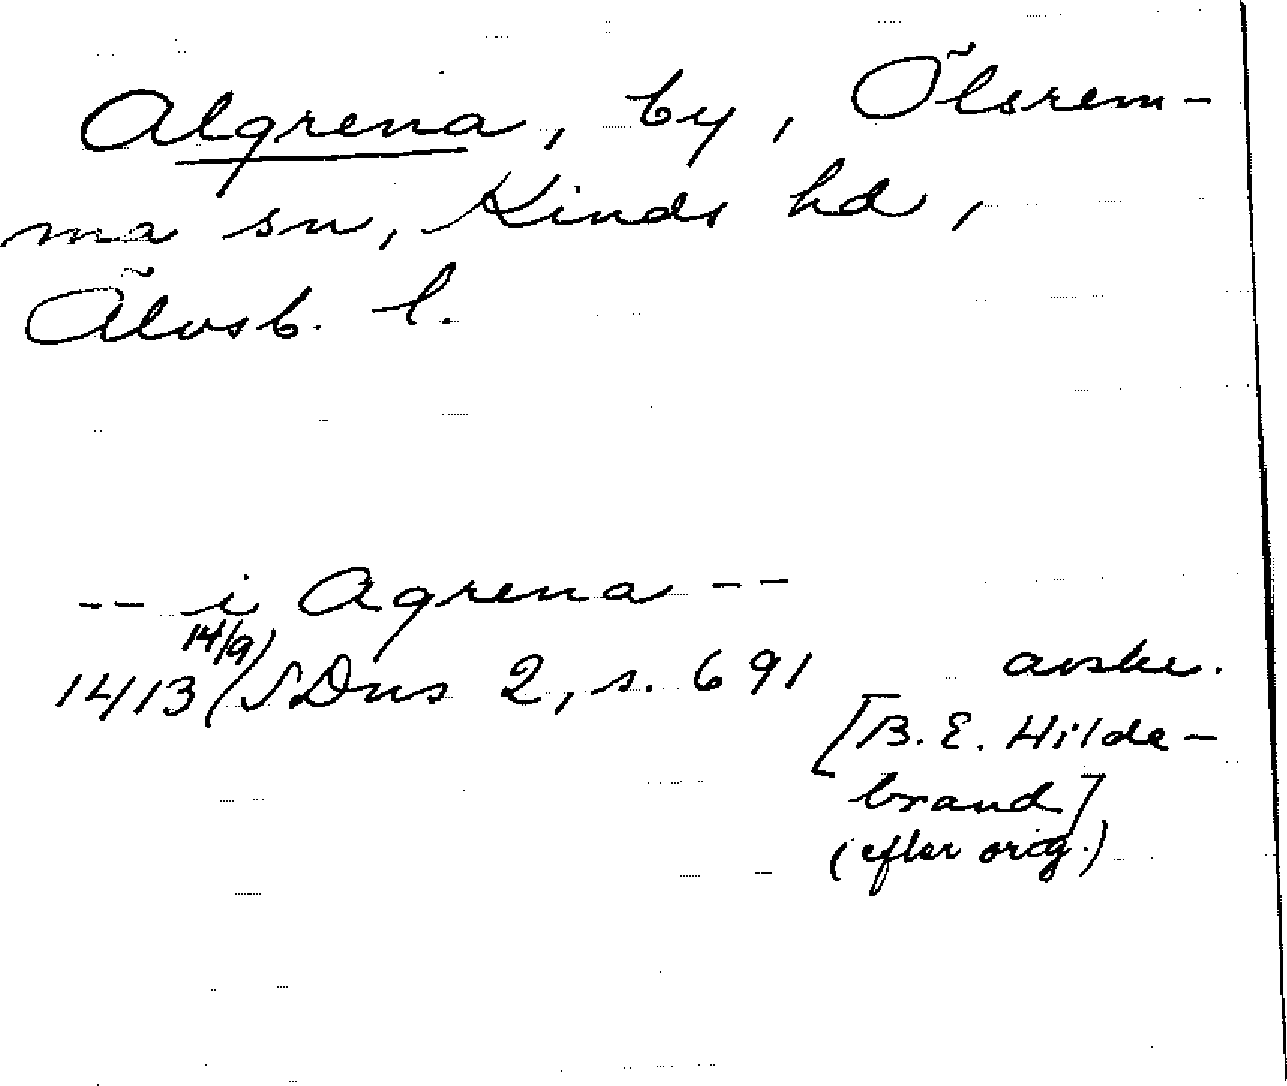 Algrena, by, Ölsrem-
ma sn, Kinds hd,
Älvsb. l.
-- i Agrena --
1413 14/9) SDns 2, s. 691 avskr.
[B. E. Hilde-
brand]
(efter orig.)